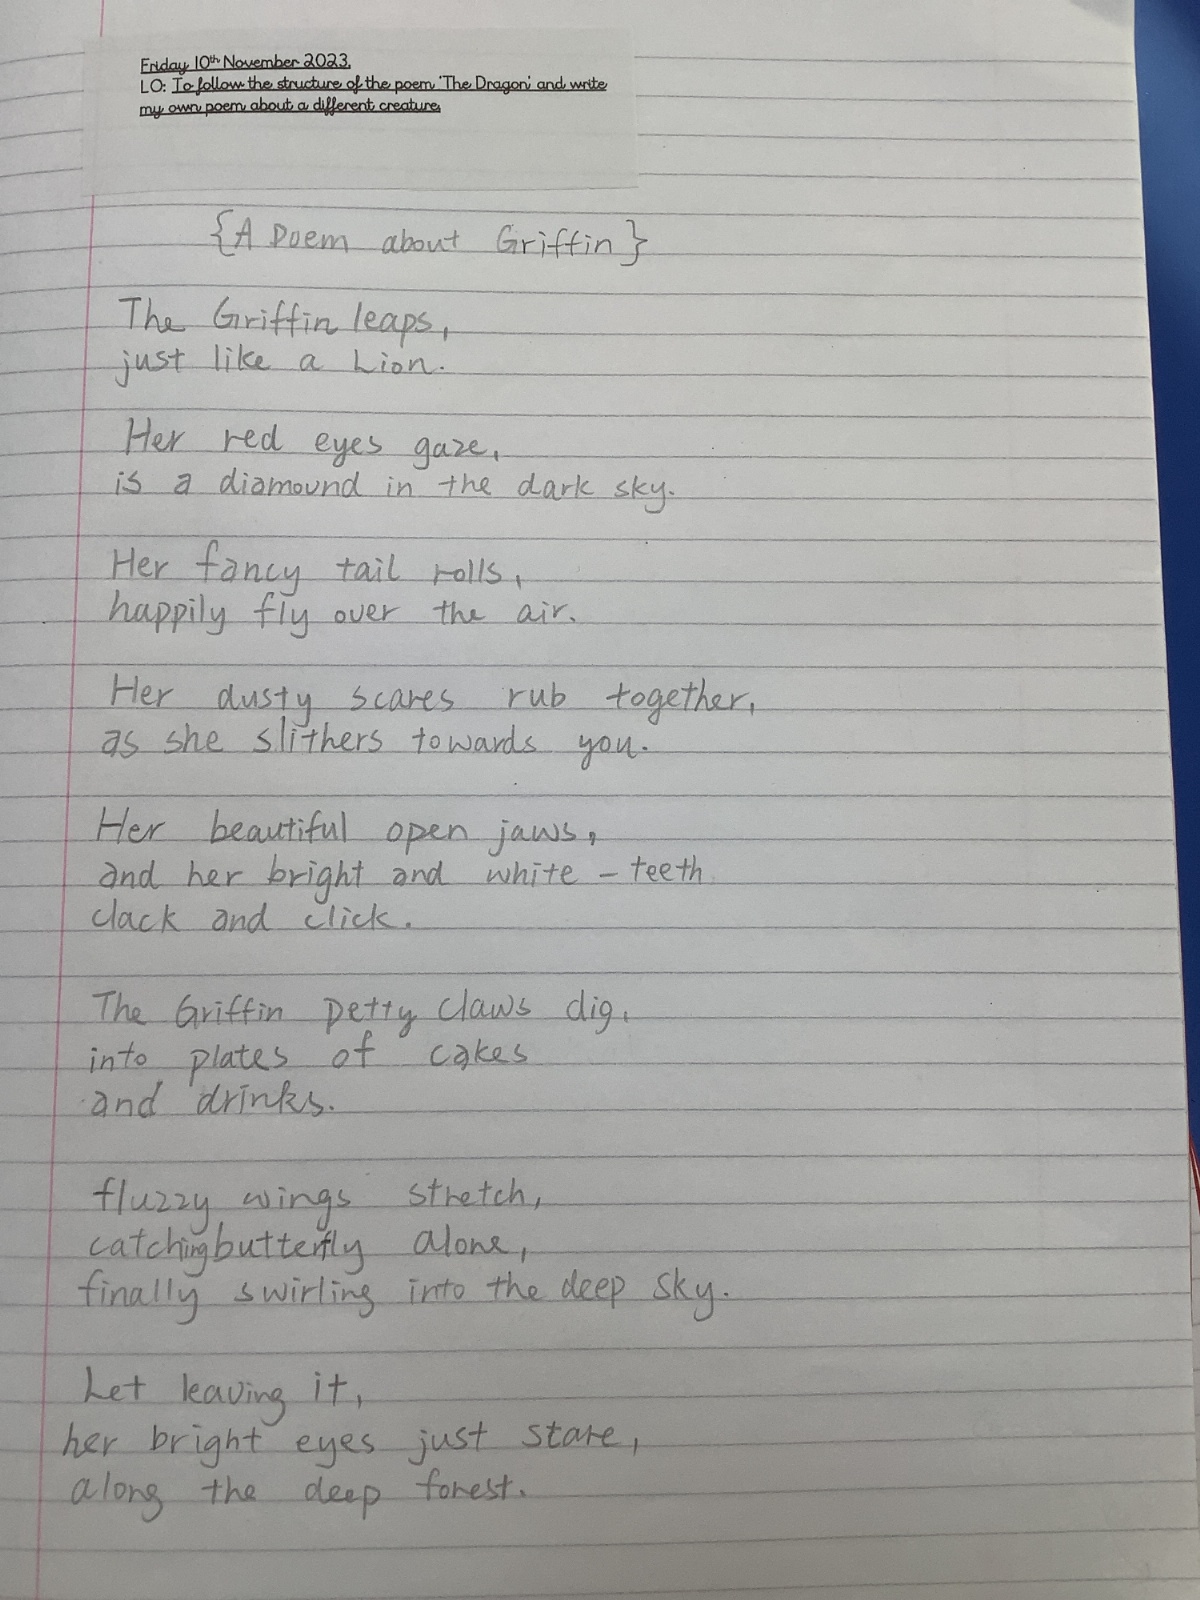 Friday 10th November 2023.
LO: To follow the structure of the poem 'The Dragon' and write
my own poem about a different creature
{A Poem about Griffin}
The Griffin leaps,
just like a Lion.
Her red eyes gaze,
is a diamound in the dark sky.
Her fancy tail rolls,
happily fly over the air.
Her dusty scares rub together,
as she slithers towards you.
Her beautiful open jaws,
and her bright and white - teeth
clack and click.
The Griffin petty claws dig,
into plates of cakes
and drinks.
fluzzy wings stretch,
catching butterfly alone,
finally swirling into the deep sky.
Let leaving it,
her bright eyes just stare,
along the deep forest.